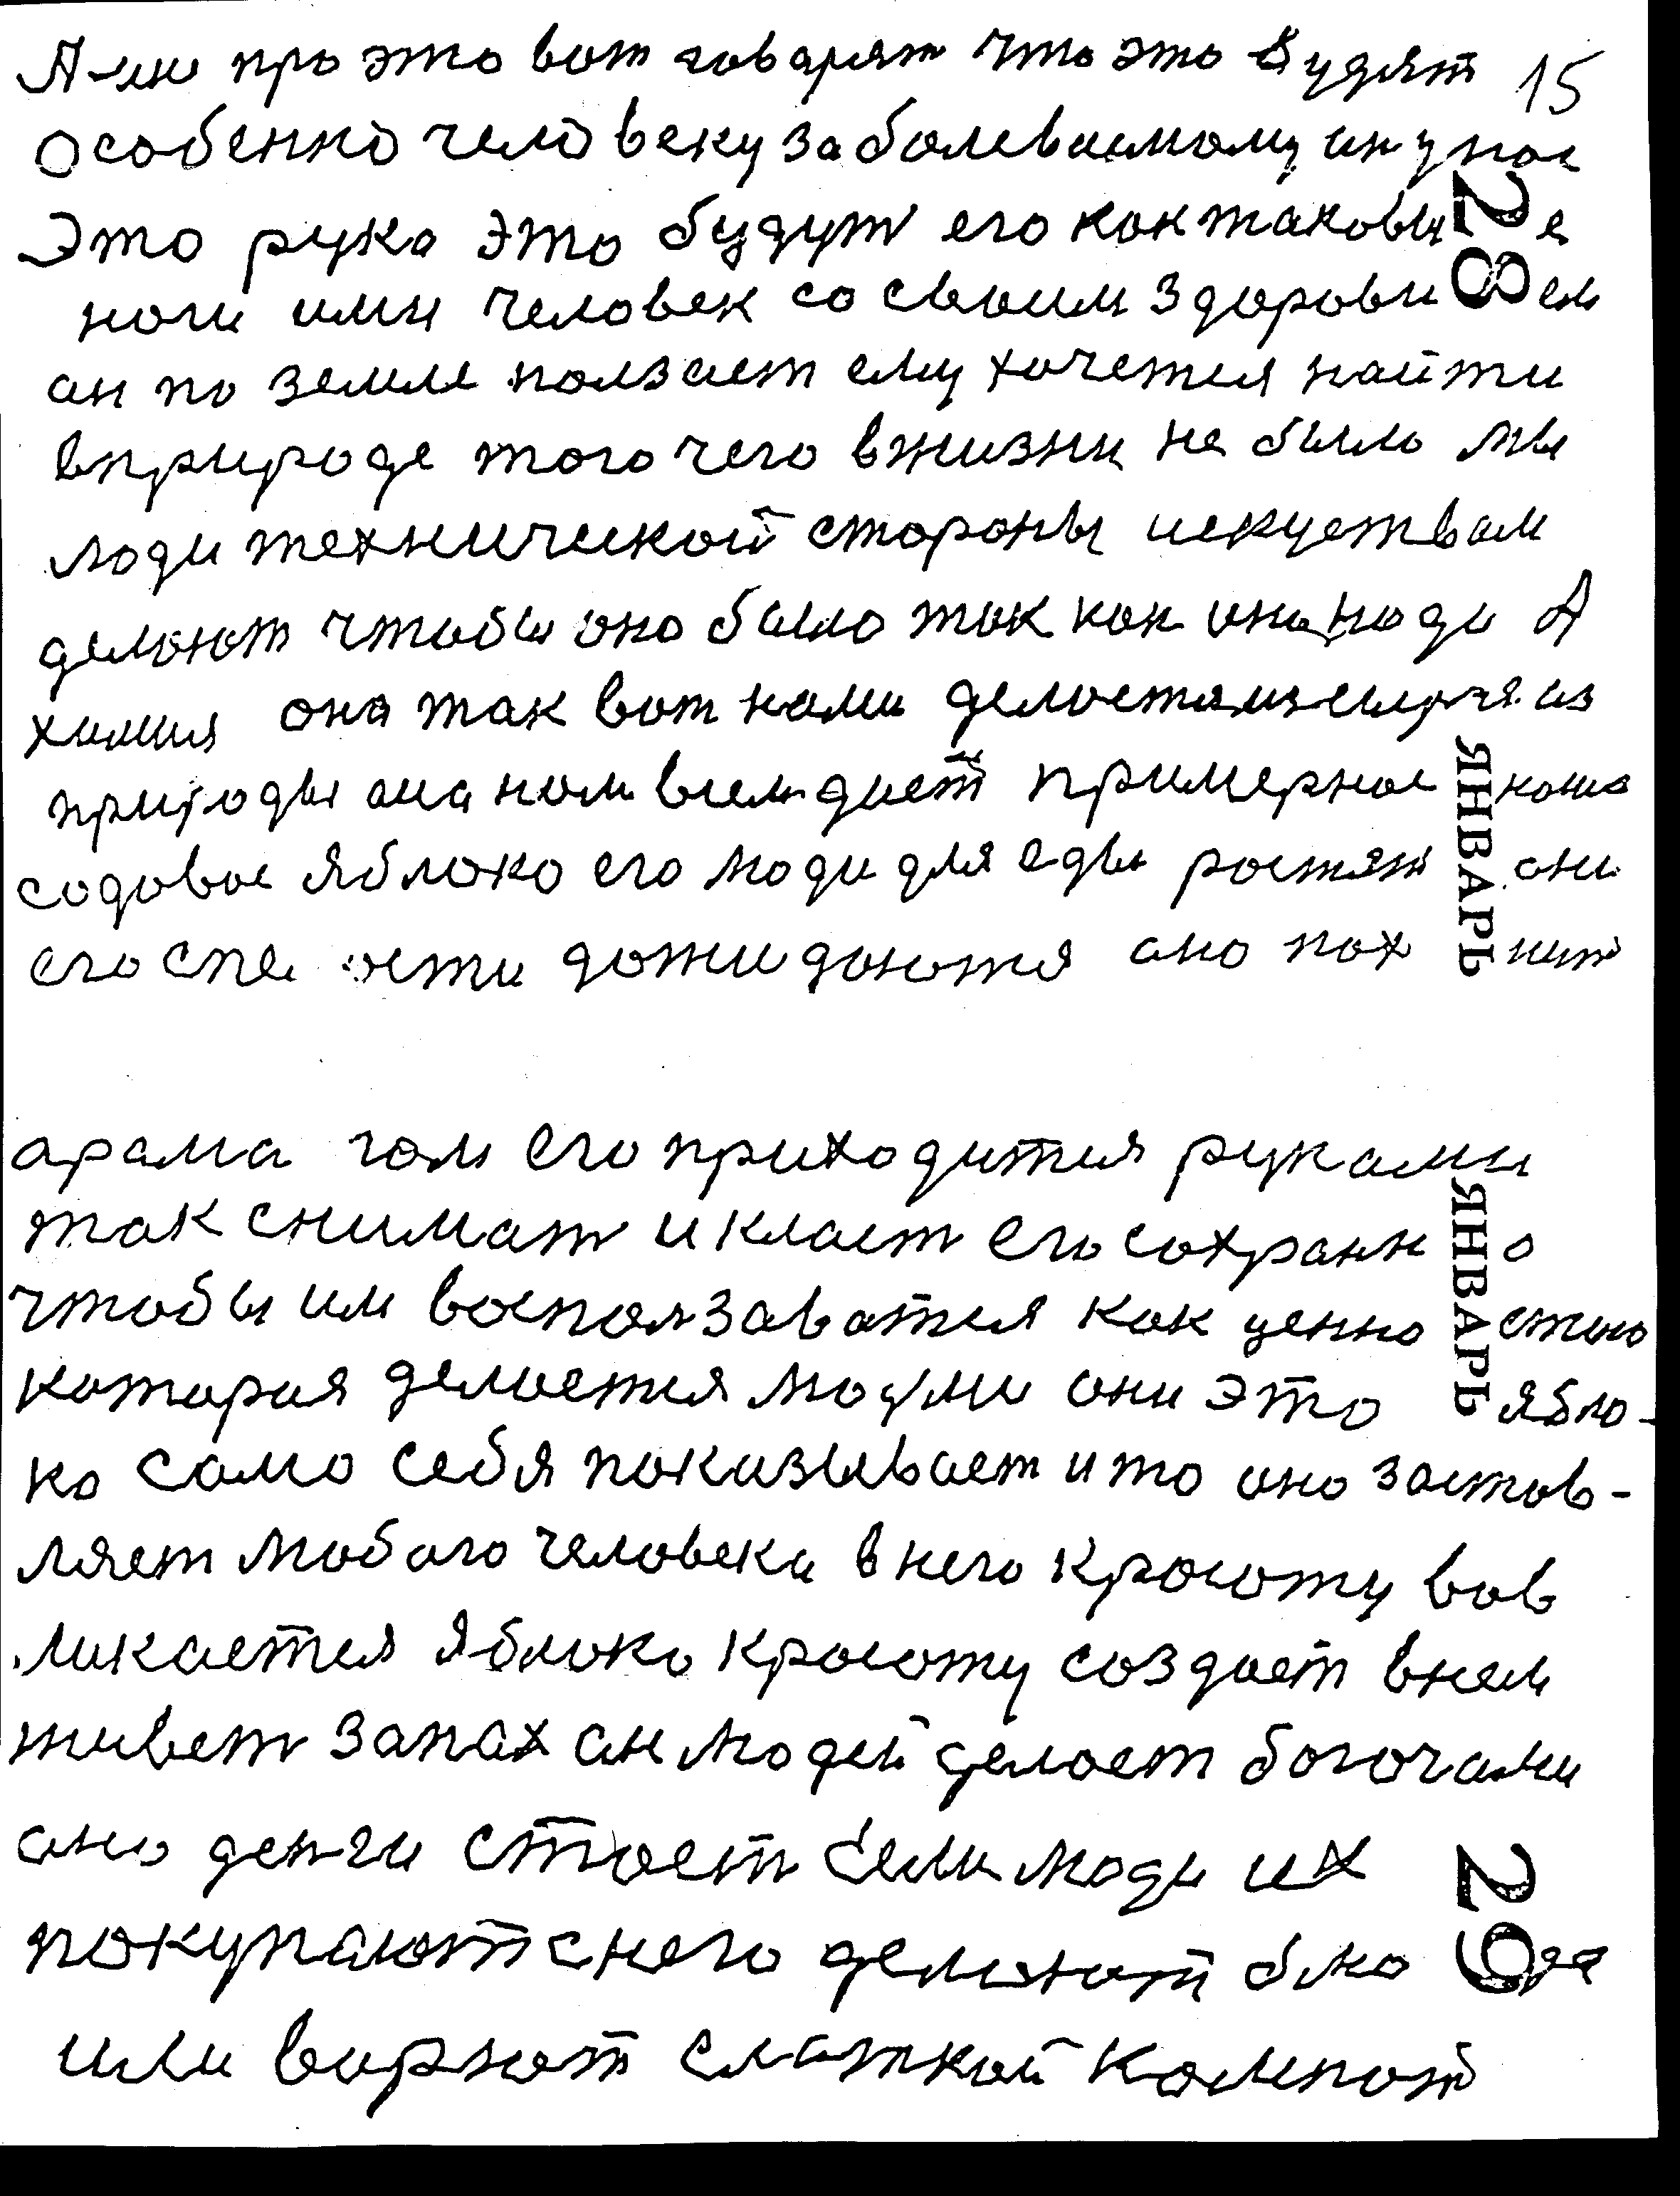 А им про это вот говарят что это будят 15
особенно человеку заболеваимому
Это рука это будут его как таковые 28
ноги ими человек со своим здоровием
ан по земле ползает ему хочется найти
в природе того чего в жизни не было мы
люди технической стороны искуством
делают чтобы оно было так как оно надо А
химия она так вот нами делается из
природы она нам всем дает примерное наше
садовое яблоко его люди для еды ростят они
его спелости дожидаются оно пахнит
ЯНВАРЬ
арама том его приходится руками
так снимат и класт его сохранно
чтобы им воспользаватся как ценностью
которая делается людми они это ябло-
ко само себя показывает и то оно застав-
ляет любого человека в него красоту вов
ликается яблоко красоту создает в нем
живет запах он людей делает богочами
оно денги стоет Если люди их
покупают с него делают блюда
или варют слаткой компот
ЯНВАРЬ
29